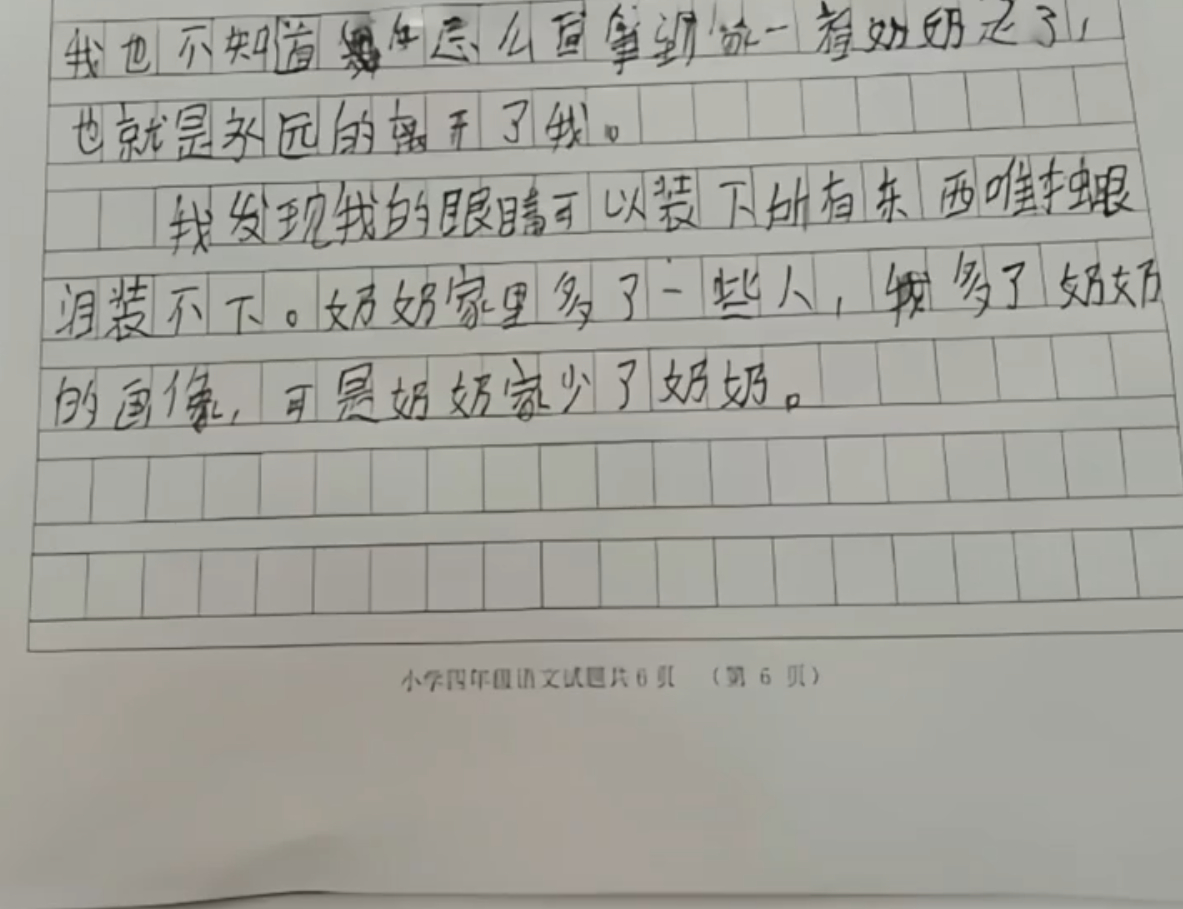 我也不知道怎么直奶奶走了，
也就是永远的离开了我。
我发现我的眼睛可以装下所有东西唯独眼
泪装不下。奶奶家里多了一些人，我多了奶奶
的画像，可是奶奶家少了奶奶。
小学四年级语文试题共6页 （第 6 页）